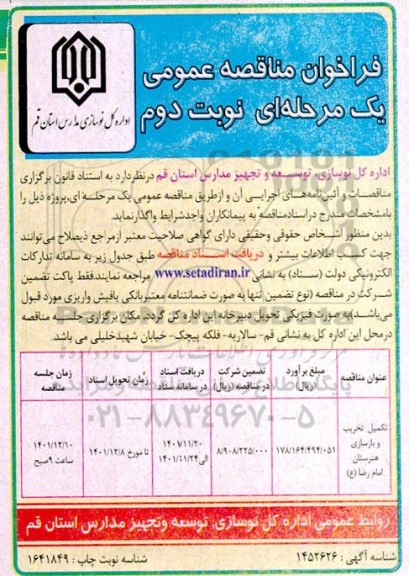 فراخوان مناقصه عمومی
یک مرحله‌ای نوبت دوم
اداره کل نوسازی مدارس استان قم
اداره کل نوسازی، توسعه و تجهیز مدارس استان قم درنظردارد به استناد قانون برگزاری
مناقصات و آئین‌نامه‌های اجرایی آن و ازطریق مناقصه عمومی یک مرحله ای،پروژه ذیل را
بامشخصات مندرج دراسنادمناقصه به پیمانکاران واجدشرایط واگذارنماید.
بدین منظور اشخاص حقوقی وحقیقی دارای گواهی صلاحیت معتبر ازمراجع ذیصلاح می‌توانند
جهت کسب اطلاعات بیشتر و دریافت اسناد مناقصه طبق جدول زیر به سامانه تدارکات
الکترونیکی دولت (ستاد) به نشانی www.setadiran.ir مراجعه نمایند.فقط پاکت تضمین
شرکت در مناقصه (نوع تضمین تنها به صورت ضمانتنامه معتبربانکی یافیش واریزی مورد قبول
می‌باشد)به صورت فیزیکی تحویل دبیرخانه این اداره کل گردد. مکان برگزاری جلسه مناقصه
درمحل این اداره کل به نشانی قم- سالاریه- فلکه پیچک- خیابان شهیدخلیلی می باشد.
عنوان مناقصه | مبلغ برآورد (ریال) | تضمین شرکت در مناقصه (ریال) | دریافت اسناد در سامانه ستاد | زمان تحویل اسناد | زمان جلسه مناقصه
تکمیل تخریب و بازسازی هنرستان امام رضا (ع) | ۱۷۸/۱۶۴/۴۹۴/۰۵۱ | ۸/۹۰۸/۲۲۵/۰۰۰ | ۱۴۰۱/۱۱/۲۰ الی۱۴۰۱/۱۱/۲۴ | تا مورخ ۱۴۰۱/۱۲/۸ | ۱۴۰۱/۱۲/۱۰ ساعت ۹صبح
۰۲۱-۸۸۳۴۹۶۷۰-۵
روابط عمومی اداره کل نوسازی، توسعه وتجهیز مدارس استان قم
شناسه آگهی : ۱۴۵۲۶۲۶
شناسه نوبت چاپ : ۱۶۴۱۸۴۹